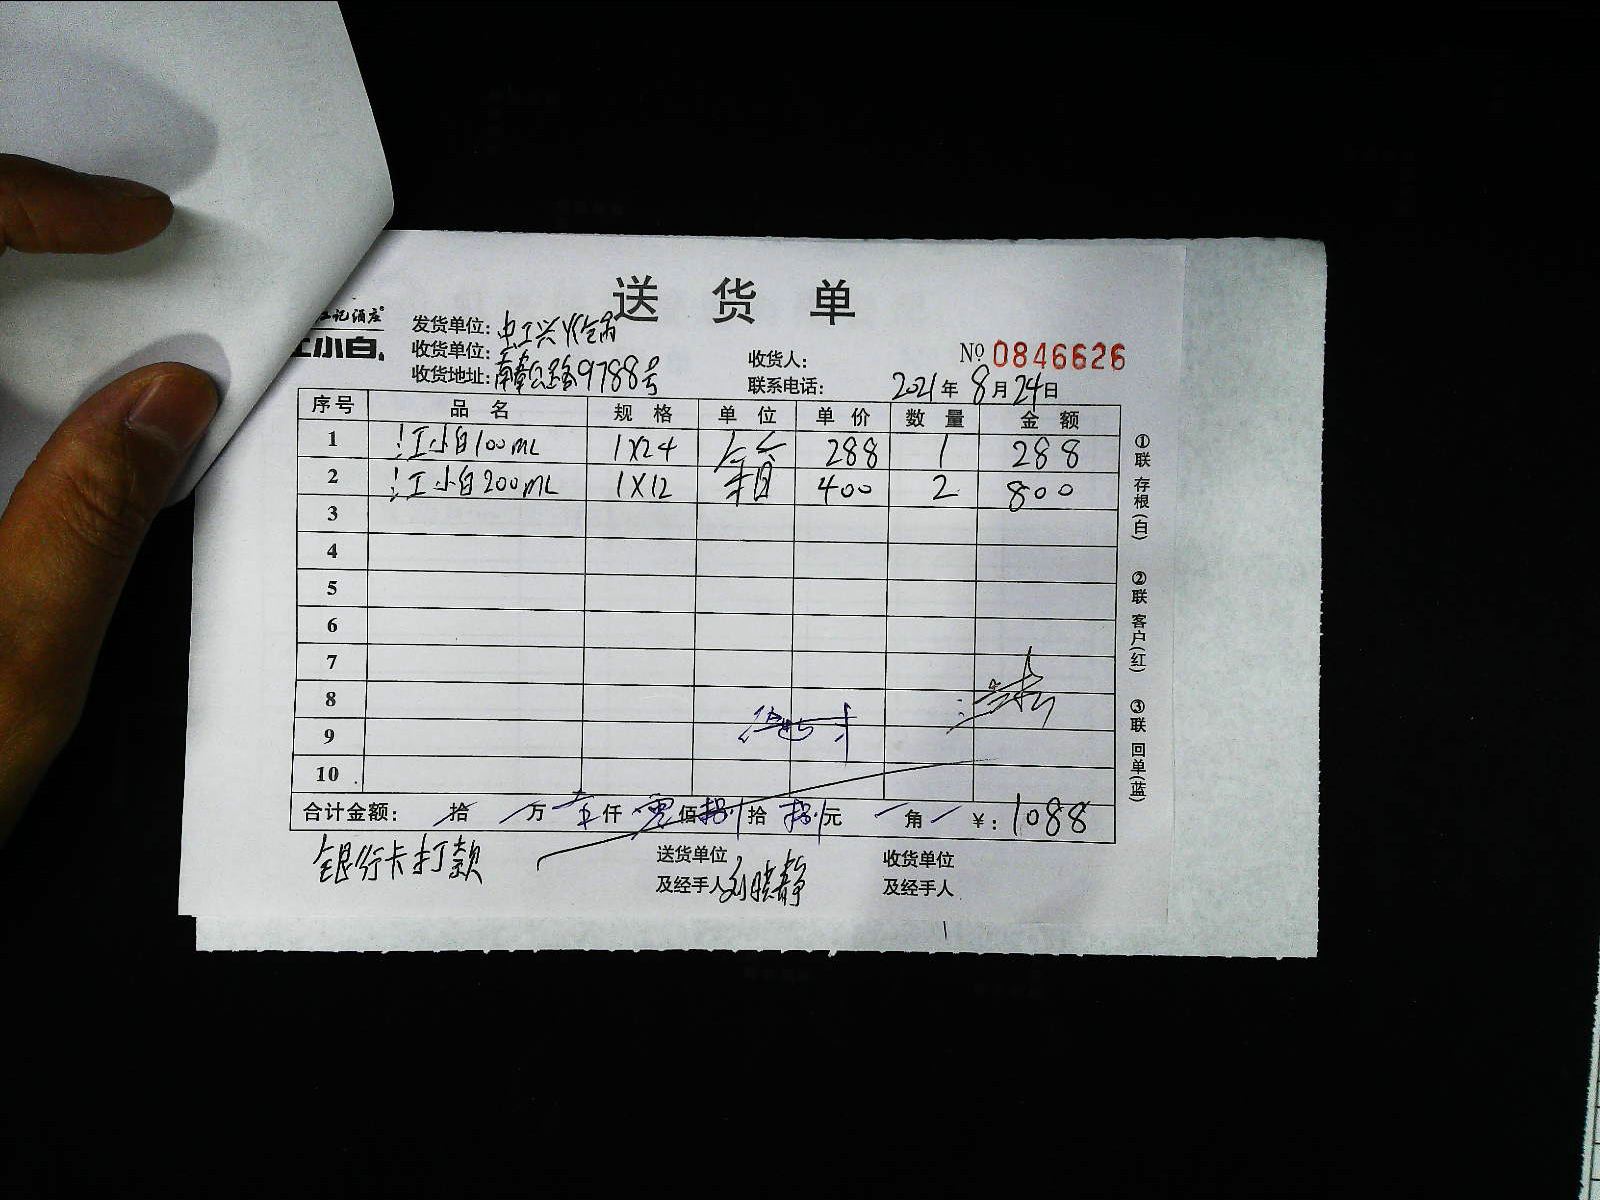 送货单
江记酒庄
江小白
发货单位:
收货单位:
收货人:
№ 0846626
收货地址: 南奉公路9788号
联系电话:
2021年8月24日
序号 品名 规格 单位 单价 数量 金额
1 江小白100mL 1X24 箱 288 1 288
2 江小白200mL 1X12 箱 400 2 800
3
4
5
6
7
8
9
10
合计金额: 拾 万 壹仟 零佰 捌拾 捌元 角 ¥: 1088
银行卡打款
送货单位
及经手人 刘晓静
收货单位
及经手人
①联 存根(白)
②联 客户(红)
③联 回单(蓝)